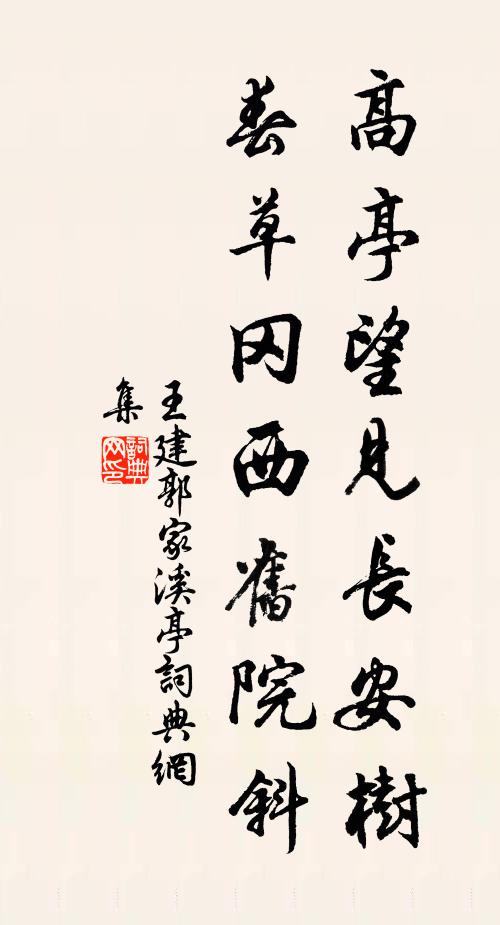 高亭望見長安樹
春草冈西舊院斜
王建郭家溪亭詞典網
集
詞典网印